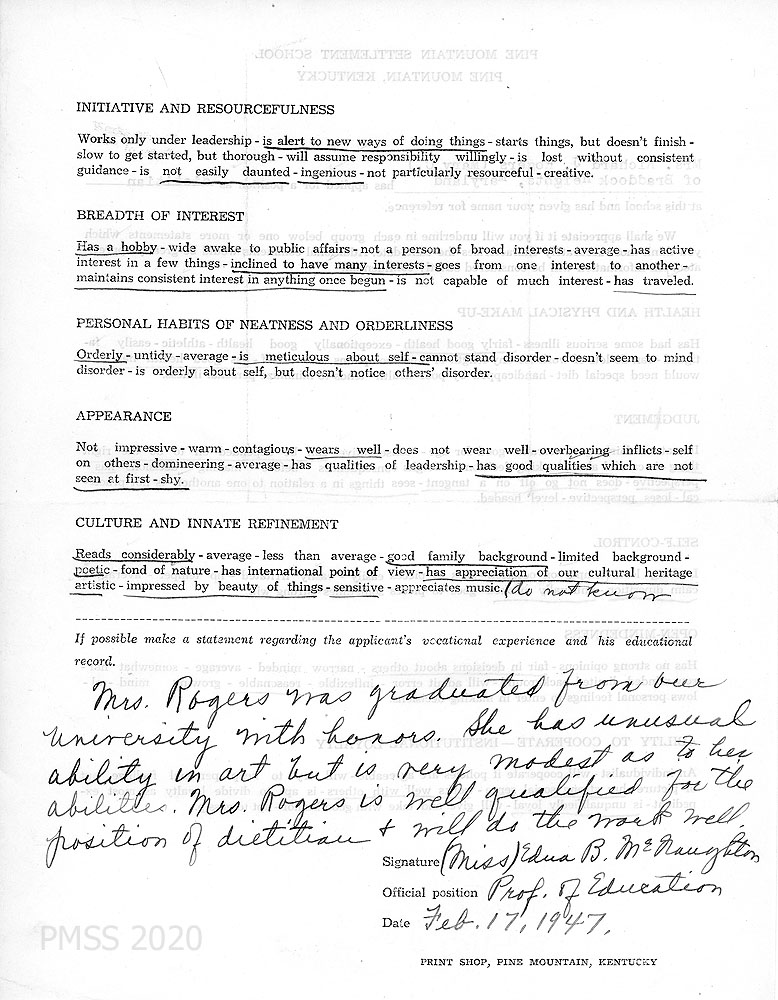 PINE MOUNTAIN SETTLEMENT SCHOOL
PINE MOUNTAIN, KENTUCKY
INITIATIVE AND RESOURCEFULNESS
Works only under leadership - is alert to new ways of doing things - starts things, but doesn't finish -
slow to get started, but thorough - will assume responsibility willingly - is lost without consistent
guidance - is not easily daunted - ingenious - not particularly resourceful - creative.
BREADTH OF INTEREST
Has a hobby - wide awake to public affairs - not a person of broad interests - average - has active
interest in a few things - inclined to have many interests - goes from one interest to another -
maintains consistent interest in anything once begun - is not capable of much interest - has traveled.
PERSONAL HABITS OF NEATNESS AND ORDERLINESS
Orderly - untidy - average - is meticulous about self - cannot stand disorder - doesn't seem to mind
disorder - is orderly about self, but doesn't notice others' disorder.
APPEARANCE
Not impressive - warm - contagious - wears well - does not wear well - overbearing inflicts - self
on others - domineering - average - has qualities of leadership - has good qualities which are not
seen at first - shy.
CULTURE AND INNATE REFINEMENT
Reads considerably - average - less than average - good family background - limited background -
poetic - fond of nature - has international point of view - has appreciation of our cultural heritage
artistic - impressed by beauty of things - sensitive - appreciates music. (do not know
If possible make a statement regarding the applicant's vocational experience and his educational
record.
Mrs. Rogers was graduated from our
university with honors. She has unusual
ability in art but is very modest as to her
abilities. Mrs. Rogers is well qualified for the
position of dietitian & will do the work well.
Signature (Miss) Edna B. McNaughton
Official position Prof. of Education
Date Feb. 17, 1947.
PMSS 2020
PRINT SHOP, PINE MOUNTAIN, KENTUCKY